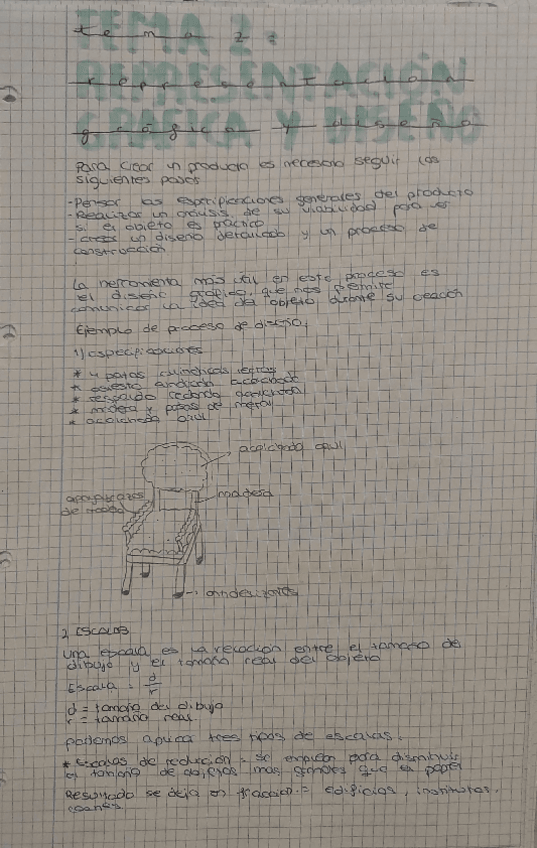 tema 2:
representacion
gráfica y diseño
TEMA 2:
REPRESENTACIÓN
GRÁFICA Y DISEÑO
Para crear un producto es necesario seguir los
siguientes pasos
-Pensar las especificaciones generales del producto
-Realizar un análisis de su viabilidad para ver
si el objeto es práctico
-crear un diseño detallado y un proceso de
construcción
La herramienta más útil en este proceso es
el diseño gráfico, que nos permite
comunicar la idea del objeto durante su creación
Ejemplo de proceso de diseño,
1) especificaciones
* 4 patas cilíndricas
* asiento acolchado
* respaldo redondo
* madera y patas de metal
* acolchado azul
acolchado azul
madera
de
2 ESCALAS
una escala es la relación entre el tamaño de
dibujo y el tamaño real del objeto
Escala = d/r
d = tamaño del dibujo
r = tamaño real
podemos aplicar tres tipos de escalas.
* Escalas de reducción = se emplean para disminuir
el tamaño de objetos mas grandes que el papel
Resultado se deja en fracción = edificios, institutos,